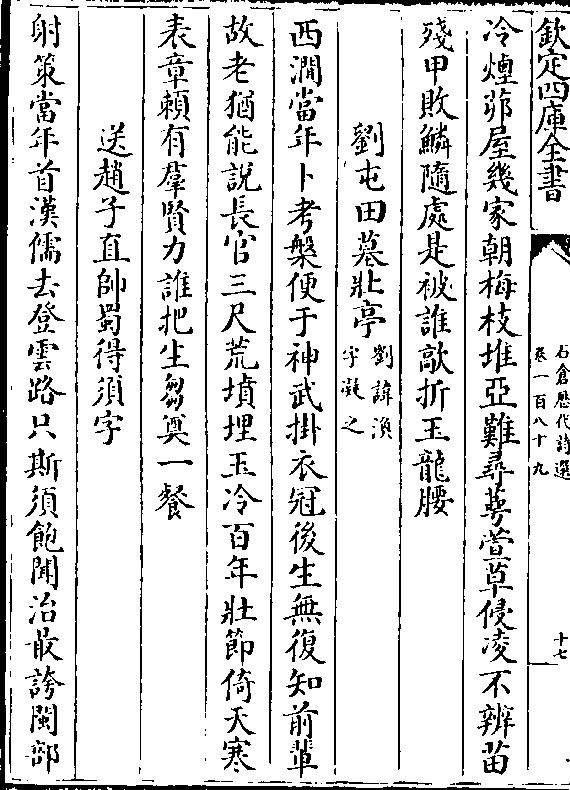 欽定四庫全書
石倉歷代詩選
卷一百八十九
十七
冷煙茆屋幾家朝梅枝堆亞難尋萼萱草侵凌不辨苗
殘甲敗鱗隨處是被誰敲折玉龍腰
劉屯田墓壯亭
劉諱渙
字凝之
西澗當年卜考槃便于神武掛衣冠後生無復知前輩
故老猶能說長官三尺荒墳埋玉冷百年壯節倚天寒
表章頼有羣賢力誰把生芻奠一餐
送趙子直帥蜀得須字
射策當年首漢儒去登雲路只斯須飽聞治最誇閩部